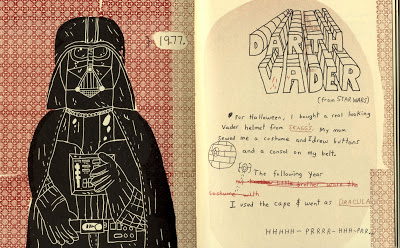 1977.
DARTH
VADER
(from STAR WARS)
For Halloween, I bought a real looking
Vader helmet from KAGGS. My mom
sewed me a costume and I drew buttons
and a consol on my belt.
The following year
my twerpy little brother wore the
costume with
I used the cape & went as DRACULA
HHHHH-PRRRR-HHH-PRR..